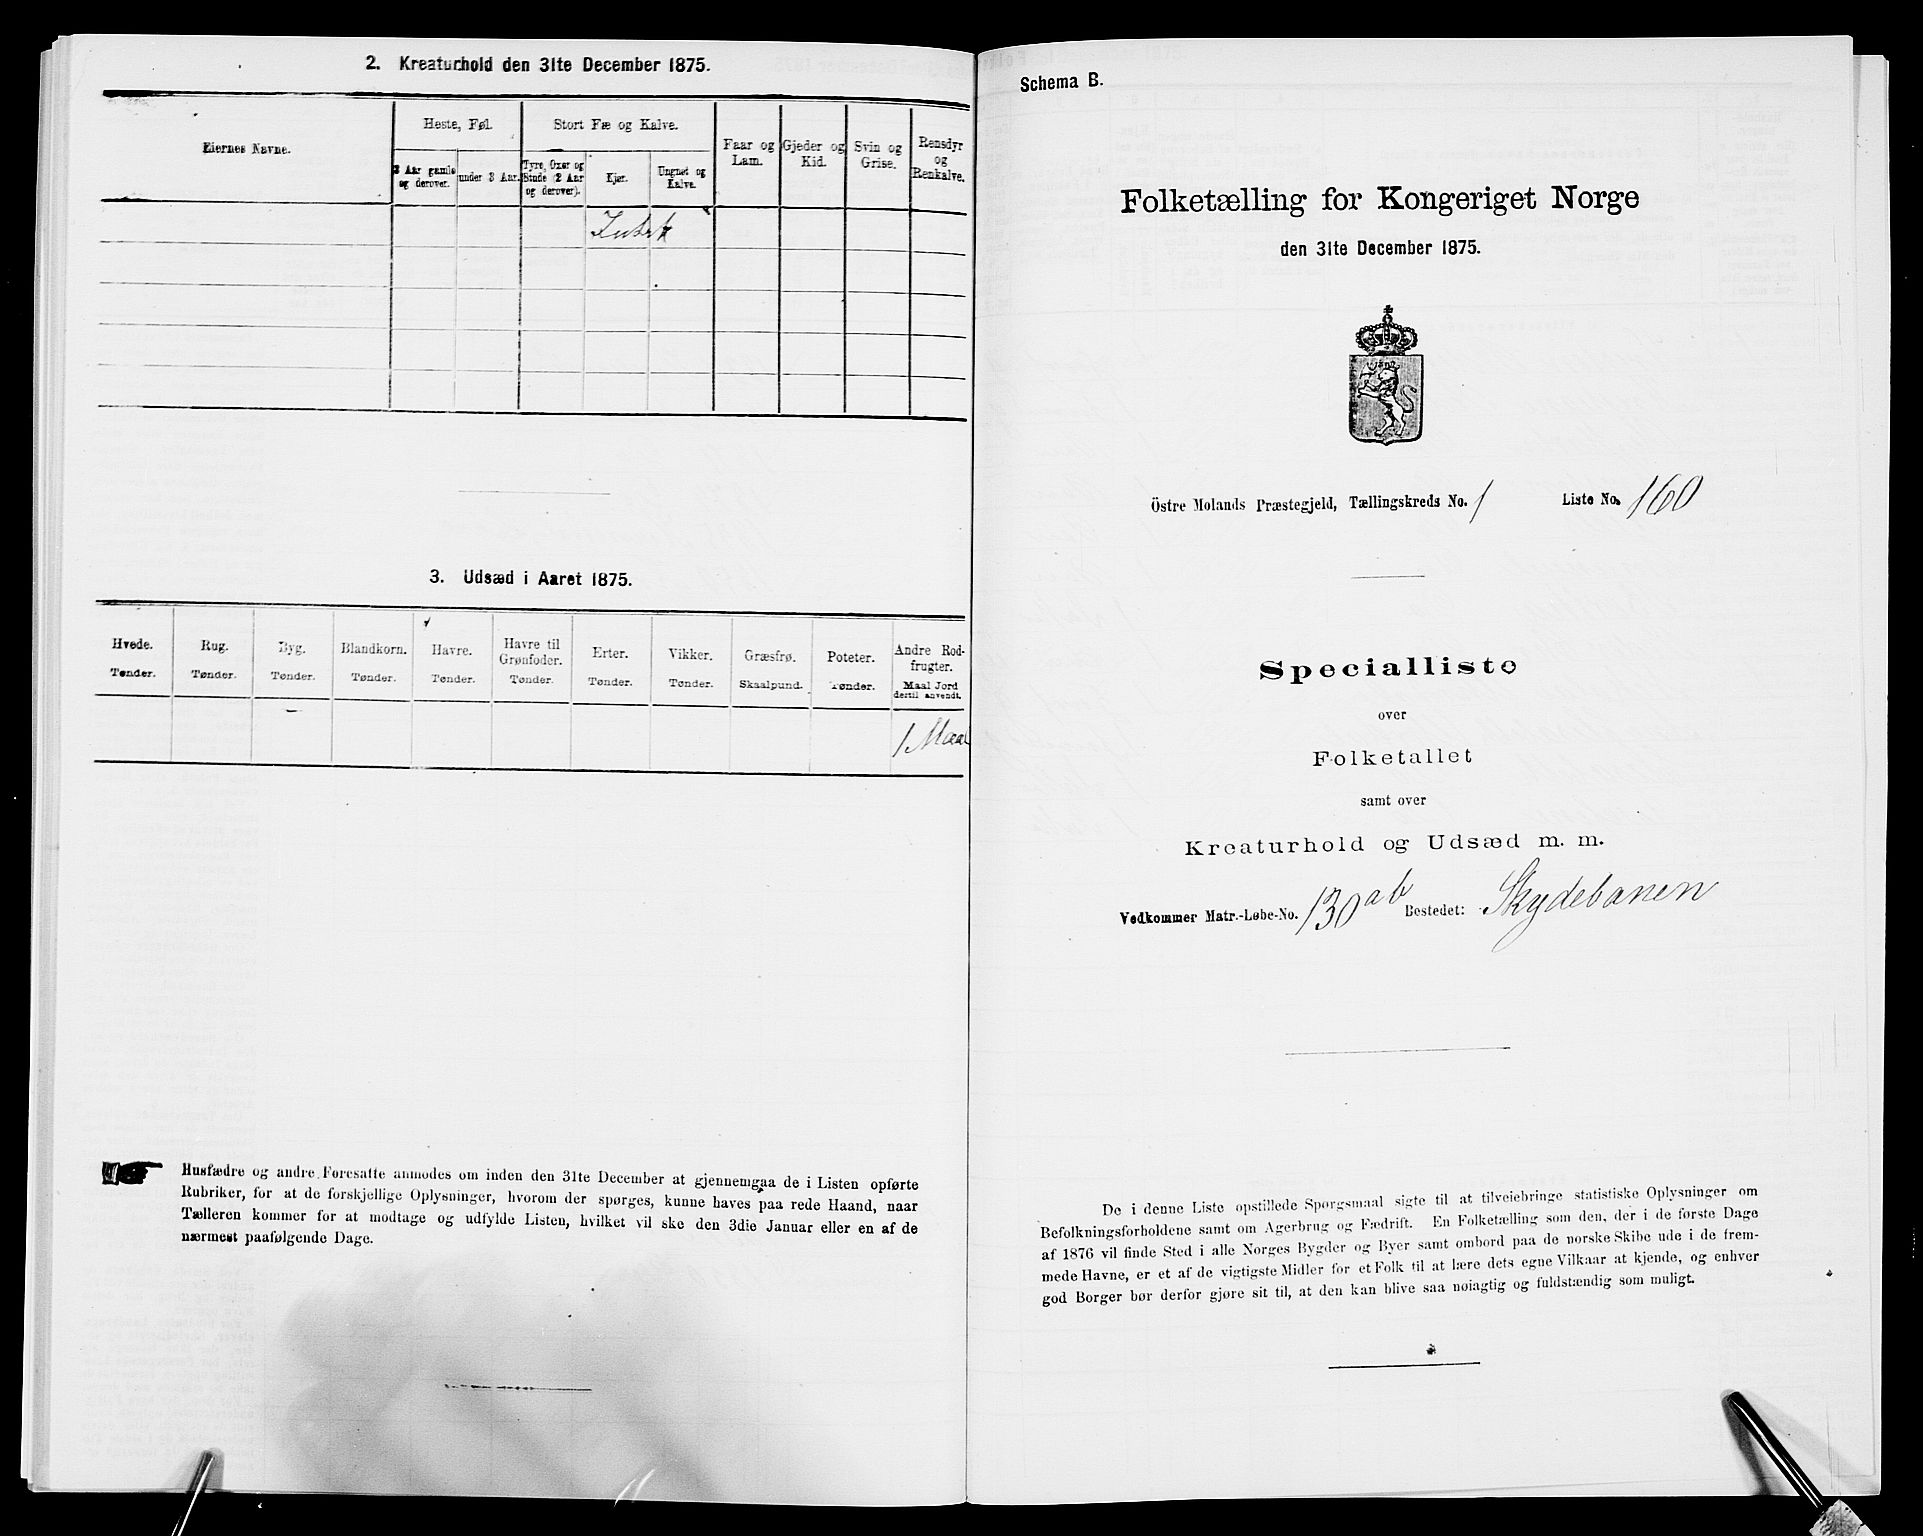 2. Kreaturhold den 31te December 1875.
Eiernes Navne.
Heste, Føl.
Stort Fæ og Kalve.
Faar og Lam.
Gjeder og Kid.
Svin og Grise.
Rensdyr og Renkalve.
3 Aar gamle og derover.
under 3 Aar.
Tyre, Oxer og Stude (2 Aar og derover).
Kjør.
Ungnet og Kalve.
3. Udsæd i Aaret 1875.
Hvede. Tønder.
Rug. Tønder.
Byg. Tønder.
Blandkorn. Tønder.
Havre. Tønder.
Havre til Grønfoder. Tønder.
Erter. Tønder.
Vikker. Tønder.
Græsfrø. Skaalpund.
Poteter. Tønder.
Andre Rodfrugter. Maal Jord dertil anvendt.
1 Maal
Husfædre og andre Foresatte anmodes om inden den 31te December at gjennemgaa de i Listen opførte
Rubriker, for at de forskjellige Oplysninger, hvorom der spørges, kunne haves paa rede Haand, naar
Tælleren kommer for at modtage og udfylde Listen, hvilket vil ske den 3die Januar eller en af de
nærmest paafølgende Dage.
Schema B.
Folketælling for Kongeriget Norge
den 31te December 1875.
Östre Molands Præstegjeld, Tællingskreds No. 1 Liste No. 160
Specialliste
over
Folketallet
samt over
Kreaturhold og Udsæd m. m.
Vedkommer Matr.-Løbe-No. 130ab Bostedet: Skydebanen
De i denne Liste opstillede Spørgsmaal sigte til at tilveiebringe statistiske Oplysninger om
Befolkningsforholdene samt om Agerbrug og Fædrift. En Folketælling som den, der i de første Dage
af 1876 vil finde Sted i alle Norges Bygder og Byer samt ombord paa de norske Skibe ude i de frem-
mede Havne, er et af de vigtigste Midler for et Folk til at lære dets egne Vilkaar at kjende, og enhver
god Borger bør derfor gjøre sit til, at den kan blive saa nøiagtig og fuldstændig som muligt.